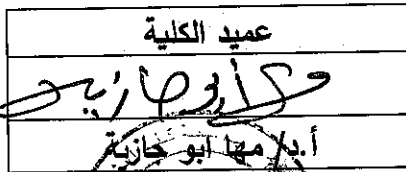 عميد الكلية
أ.د/ مها ابو جازية